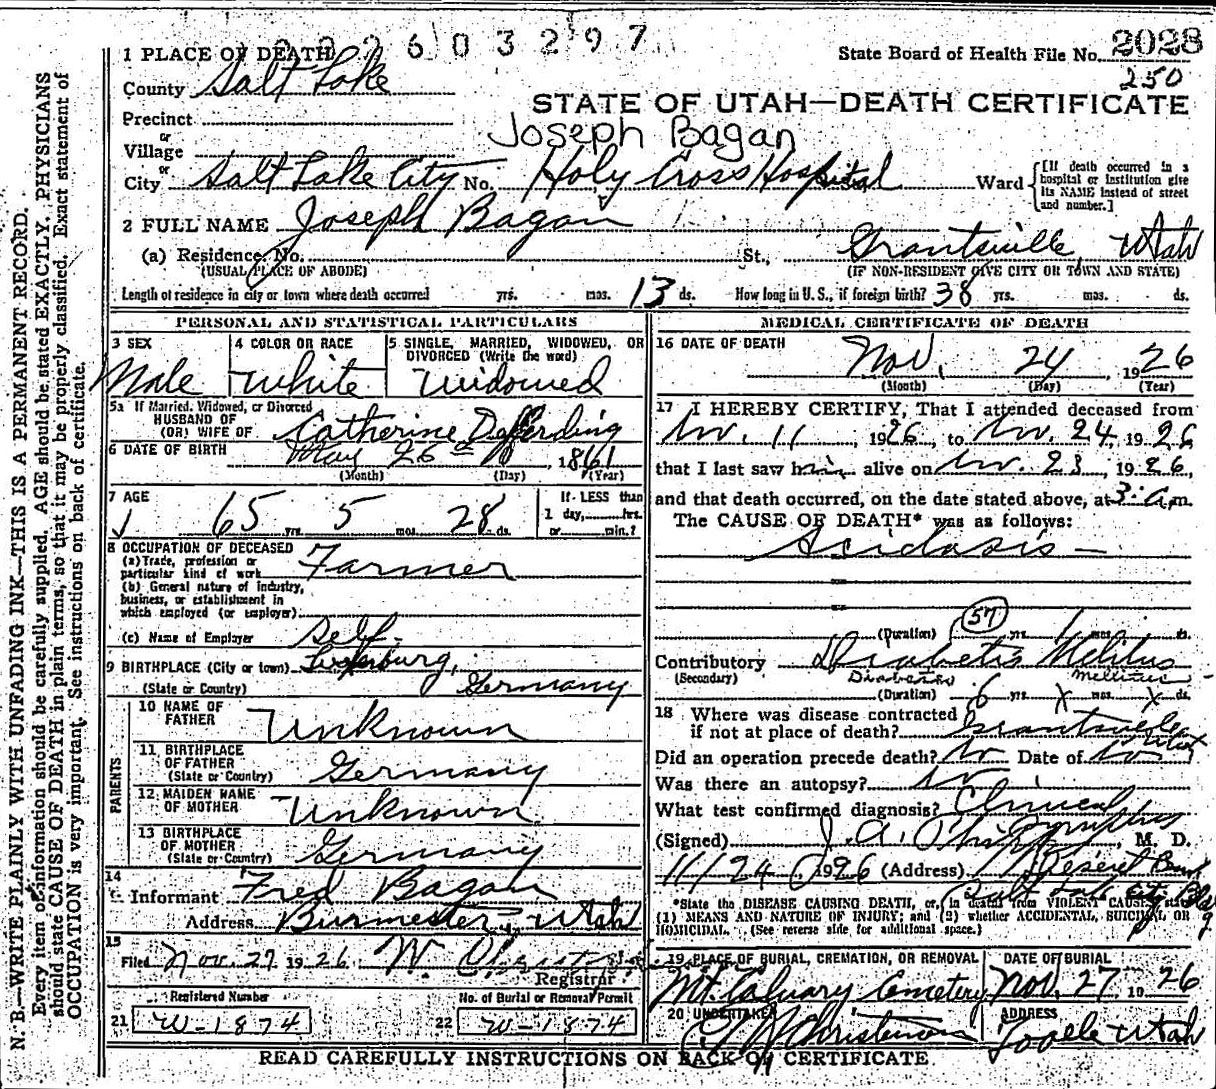 2 6 0 3 2 9 7
1 PLACE OF DEATH
State Board of Health File No. 2028
250
County Salt Lake
STATE OF UTAH—DEATH CERTIFICATE
Precinct
Joseph Bagan
or
Village
or
City Salt Lake City No. Holy Cross Hospital Ward
[If death occurred in a hospital or institution give its NAME instead of street and number.]
2 FULL NAME Joseph Bagan
(a) Residence, No. St., Grantsville, Utah
(USUAL PLACE OF ABODE) (IF NON-RESIDENT GIVE CITY OR TOWN AND STATE)
Length of residence in city or town where death occurred yrs. mos. 13 ds. How long in U.S., if foreign birth? 38 yrs. mos. ds.
PERSONAL AND STATISTICAL PARTICULARS
3 SEX
Male
4 COLOR OR RACE
White
5 SINGLE, MARRIED, WIDOWED, OR DIVORCED (Write the word)
Widowed
5a If Married, Widowed, or Divorced
HUSBAND OF
(OR) WIFE OF Catherine
6 DATE OF BIRTH May 26th, 1861
(Month) (Day) (Year)
7 AGE
65 yrs 5 mos. 28 ds.
If LESS than
1 day, hrs.
or min.?
8 OCCUPATION OF DECEASED
(a) Trade, profession or
particular kind of work Farmer
(b) General nature of industry,
business, or establishment in
which employed (or employer)
(c) Name of Employer Self
9 BIRTHPLACE (City or town)
(State or Country) Germany
PARENTS
10 NAME OF
FATHER Unknown
11 BIRTHPLACE
OF FATHER
(State or Country) Germany
12 MAIDEN NAME
OF MOTHER Unknown
13 BIRTHPLACE
OF MOTHER
(State or Country) Germany
14
Informant Fred Bagan
Address Burmester, Utah
15
Filed Nov. 27 1926 W.
Registrar
Registered Number
21 W-1874
No. of Burial or Removal Permit
22 W-1874
MEDICAL CERTIFICATE OF DEATH
16 DATE OF DEATH
Nov. 24, 1926
(Month) (Day) (Year)
17 I HEREBY CERTIFY, That I attended deceased from
Nov. 11, 1926, to Nov. 24, 1926
that I last saw him alive on Nov. 23, 1926,
and that death occurred, on the date stated above, at 3: a.m.
The CAUSE OF DEATH* was as follows:
Acidosis —
57
(Duration) yrs 1 mos. ds.
Contributory Diabetis Melitus
(Secondary) Diabetes Mellitus
(Duration) 6 yrs. X mos. X ds.
18 Where was disease contracted
if not at place of death? Grantsville Utah
Did an operation precede death? No Date of No
Was there an autopsy? No
What test confirmed diagnosis? Clinical
(Signed) J. A. M. D.
11/24 1926 (Address) Deseret Bank Bldg
Salt Lake City
*State the DISEASE CAUSING DEATH, or, in death from VIOLENT CAUSES state
(1) MEANS AND NATURE OF INJURY; and (2) whether ACCIDENTAL, SUICIDAL OR
HOMICIDAL. (See reverse side for additional space.)
19 PLACE OF BURIAL, CREMATION, OR REMOVAL
Mt. Calvary Cemetery
DATE OF BURIAL
Nov. 27 1926
20 UNDERTAKER
Christenson
ADDRESS
Tooele Utah
READ CAREFULLY INSTRUCTIONS ON BACK OF CERTIFICATE
N. B.—WRITE PLAINLY WITH UNFADING INK—THIS IS A PERMANENT RECORD.
Every item of information should be carefully supplied. AGE should be stated EXACTLY. PHYSICIANS
should state CAUSE OF DEATH in plain terms, so that it may be properly classified. Exact statement of
OCCUPATION is very important. See instructions on back of certificate.